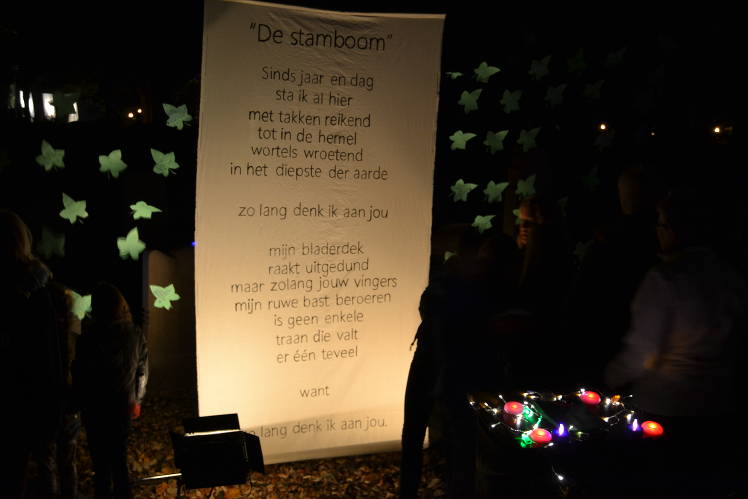 "De stamboom"
Sinds jaar en dag
sta ik al hier
met takken reikend
tot in de hemel
wortels wroetend
in het diepste der aarde
zo lang denk ik aan jou
mijn bladerdek
raakt uitgedund
maar zolang jouw vingers
mijn ruwe bast beroeren
is geen enkele
traan die valt
er één teveel
want
lang denk ik aan jou.